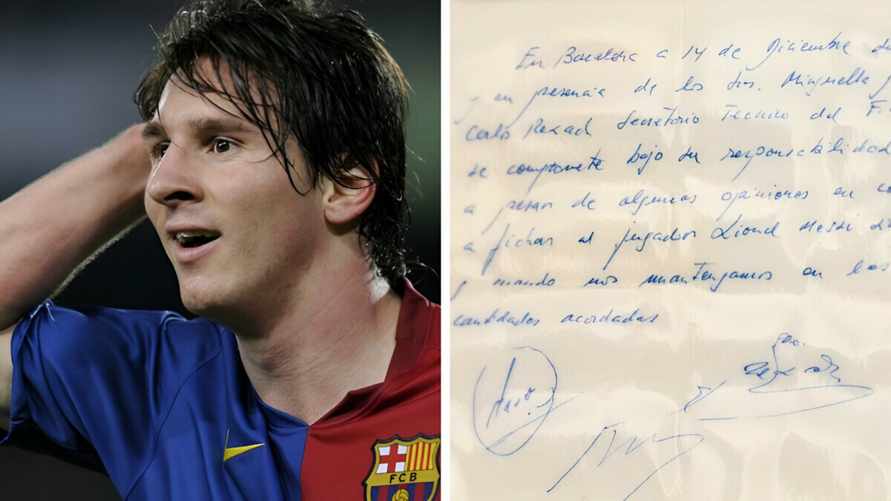 En Barcelona a 14 de Diciembre de
y en presencia de los Srs. Minguella y
Carlos Rexach Secretario Tecnico del F.
se compromete bajo su responsabilidad
a pesar de algunas opiniones en co
a fichar al jugador Lionel Messi
y mando nos mantengamos en las
cantidades acordadas
FCB